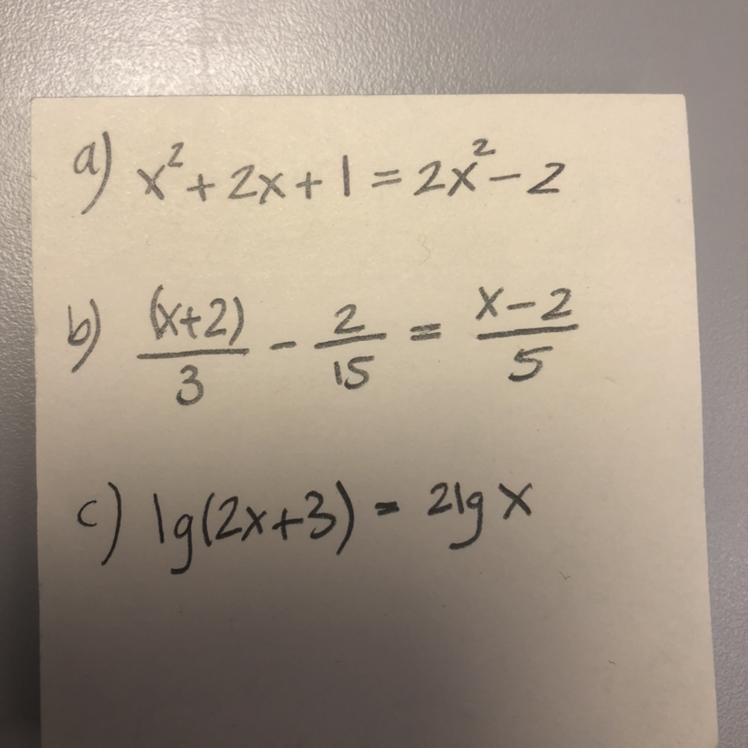 a) x² + 2x + 1 = 2x² - 2
b) (x+2)/3 - 2/15 = x-2/5
c) lg(2x+3) = 2lg x